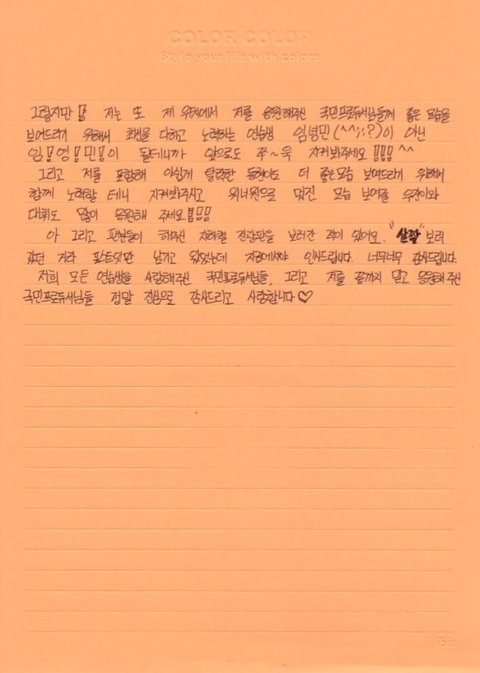 COLOR COLOR
Style your life with colors
그렇지만!! 저는 또 제 위치에서 저를 응원해주신 국민프로듀서님들께 좋은 모습을
보여드리기 위해서 최선을 다하고 노력하는 연습생 임영민(^^;;?)이 아닌
임!영!민!이 될테니까 앞으로도 쭈~욱 지켜봐주세요!!! ^^
그리고 저를 포함해 아쉽게 탈락한 동현이도 더 좋은모습 보여드리기 위해서
함께 노력할 테니 지켜봐주시고 워너원으로 멋진 모습 보여줄 우진이와
대휘도 많이 응원해 주세요!!!
아 그리고 팬분들이 해주신 지하철 전광판을 보러간 적이 있어요. "살짝" 보러
갔던 거라 포스트잇만 남기고 왔었는데 지금에서야 인사드립니다. 너무너무 감사드립니다.
저희 모든 연습생들 사랑해주신 국민프로듀서님들, 그리고 저를 끝까지 믿고 응원해 주신
국민프로듀서님들 정말 진심으로 감사드리고 사랑합니다♡